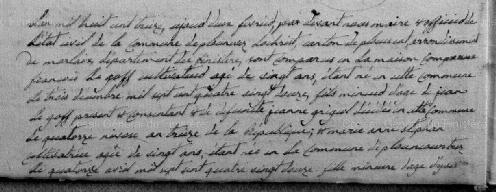 L'an mil huit cent treize, ce jourd'hui deux fevrier, par devant nous maire & officier de
l'état civil de la Commune de plounevez lochrist, canton de plouescat, arrondissement
de morlaix, departement du finistère, sont comparus en la maison Commune
françois le goff cultivateur agé de vingt ans, étant né en cette commune
le trois decembre mil sept cent quatre vingt douze, fils mineur d'age de jean
le goff present & consentant & de defunte jeanne décédée en cette Commune
le quatorze nivose an treize de la république; & marie anne
Cultivatrice agée de vingt ans, étant née en la Commune de plounevez
le quatorze avril mil sept cent quatre vingt douze fille mineure d'age